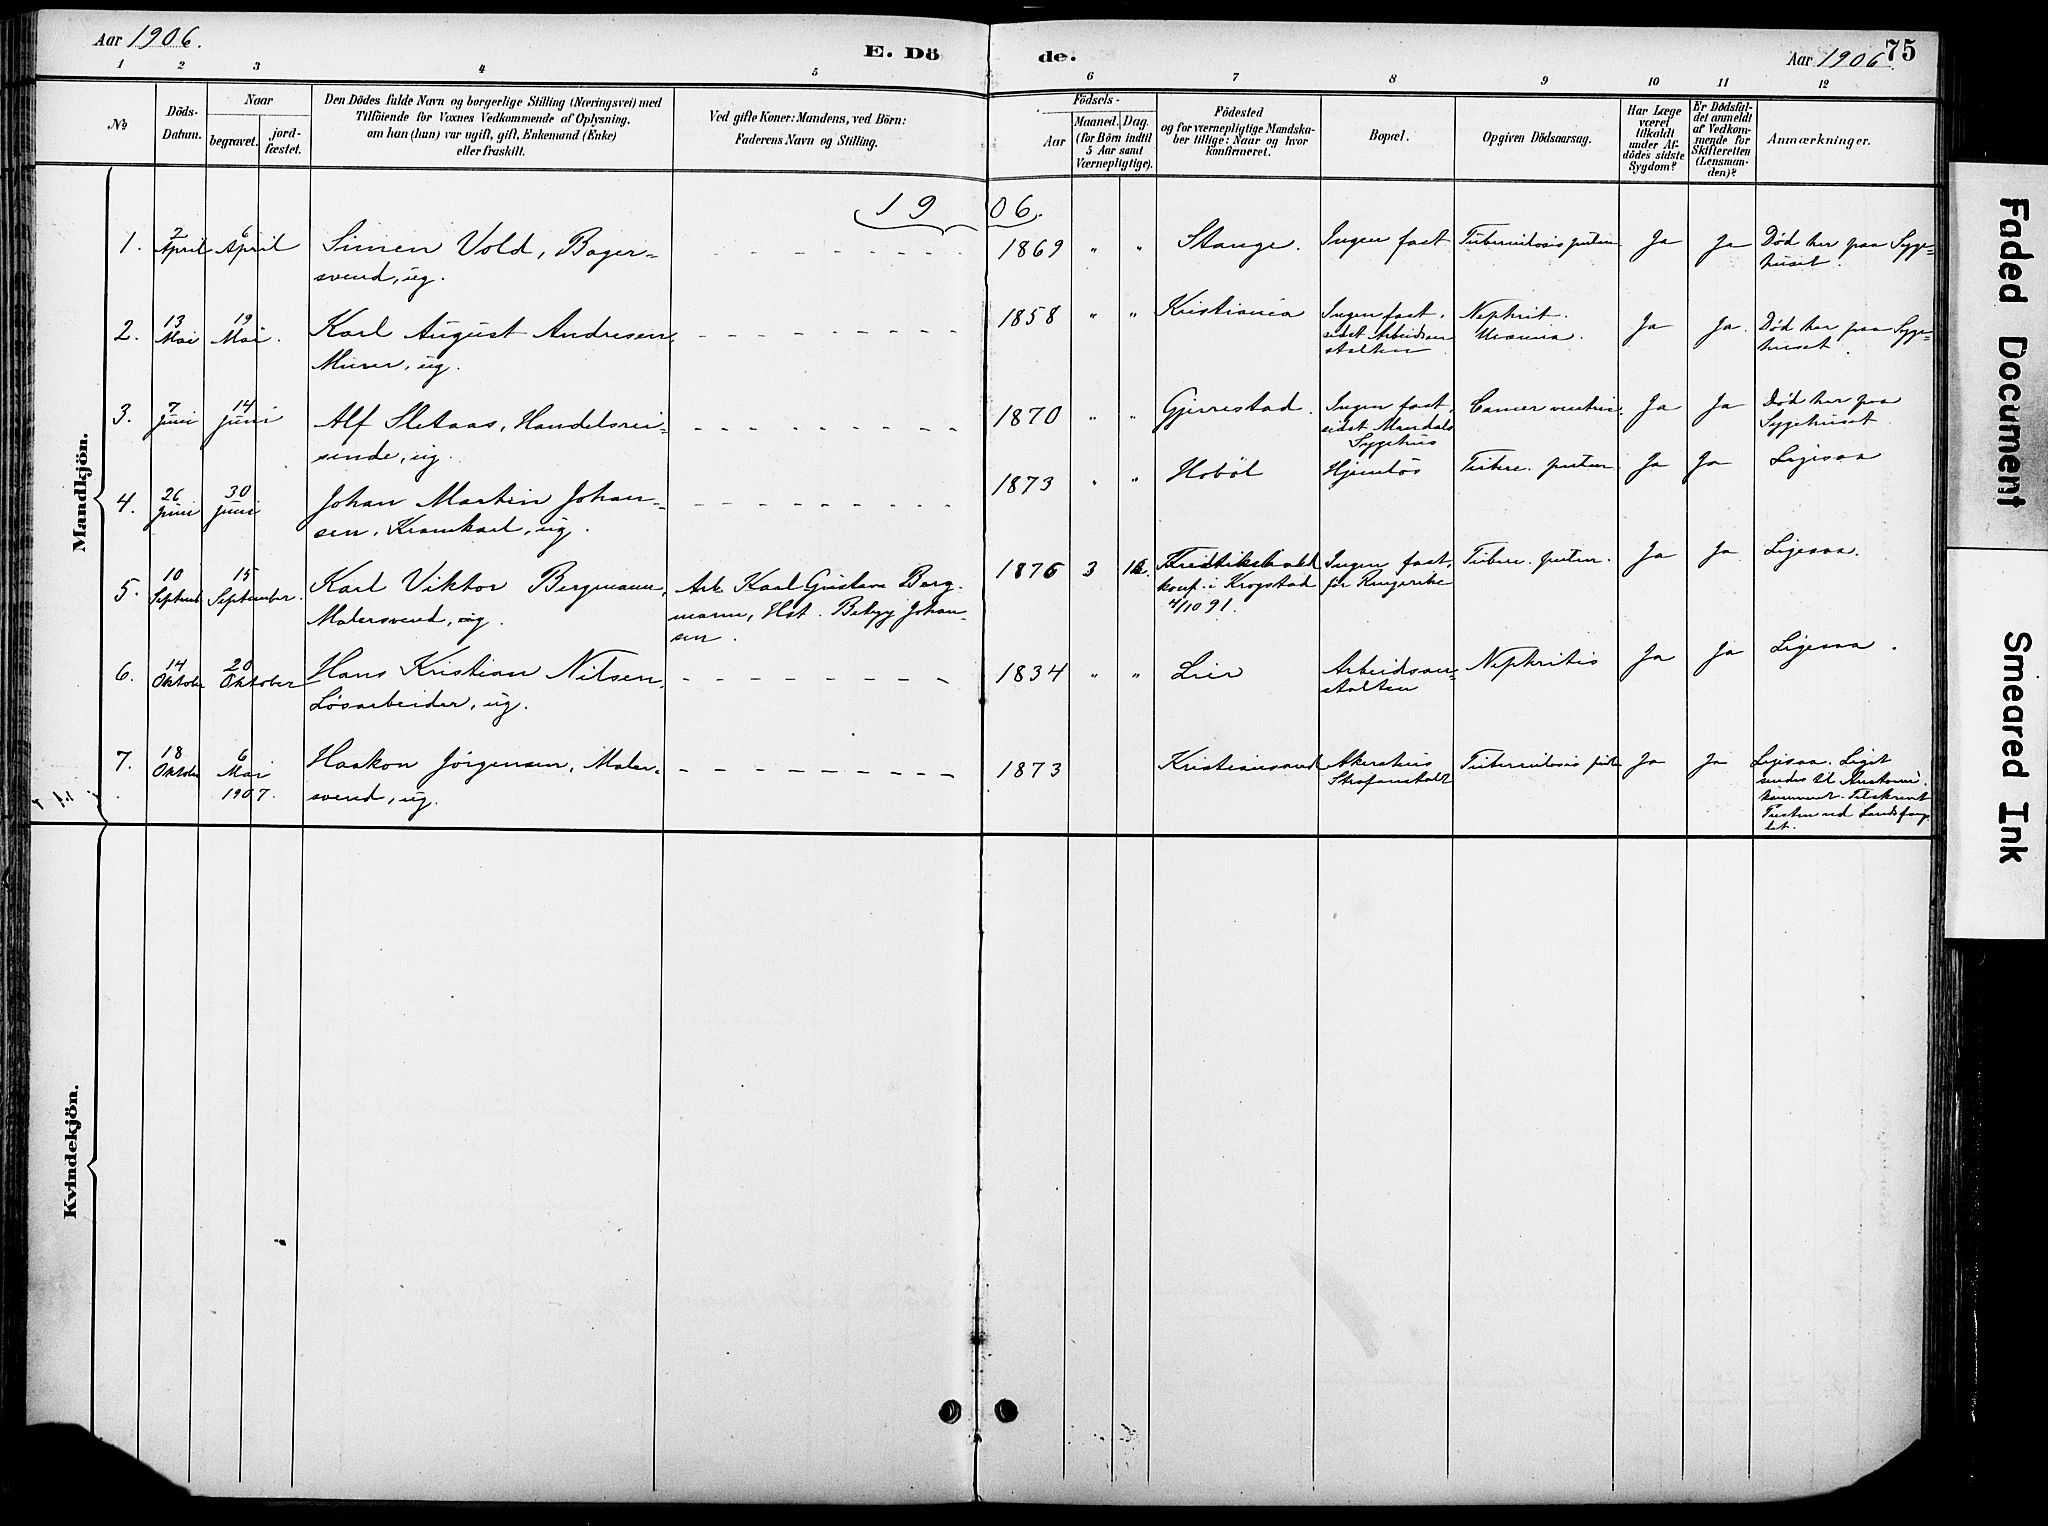 Aar 1906.
E. Dö
de.
Aar 1906
75
1 2 3 4 5 6 7 8 9 10 11 12
№
Döds-
Datum.
Naar
begravet.
jord-
fæstet.
Den Dödes fulde Navn og borgerlige Stilling (Næringsvei) med
Tilföiende for Voxnes Vedkommende af Oplysning,
om han (hun) var ugift, gift, Enkemand (Enke)
eller fraskilt.
Ved gifte Koner: Mandens, ved Börn:
Faderens Navn og Stilling.
Födsels-
Aar
Maaned.
Dag.
(for Börn indtil
5 Aar samt
Værnepligtige).
Födested
og for værnepligtige Mandska-
ber tillige: Naar og hvor
konfirmeret.
Bopæl.
Opgiven Dödsaarsag.
Har Læge
været
tilkaldt
under Af-
dödes sidste
Sygdom?
Er Dödsfal-
det anmeldt
af Vedkom-
mende for
Skifteretten
(Lensman-
den)?
Anmærkninger.
Mandkjön.
1906.
1.
April
6
April
Simen Vold, Bager-
svend, ug.
1869 " "
Stange.
Ingen fast
Ja
Ja
Død her paa Syge-
huset.
2.
13
Mai
19
Mai.
Karl August Andresen,
Murer, ug.
1858 " "
Kristiania
Ingen fast,
sidst Arbeidsan
stalten
Nephrit.
Uræmia.
Ja
Ja.
Død her paa Syge-
huset.
3.
7
Juni
14
Juni
Alf Sletaas, Handelsrei-
sende, ug.
1870 " "
Gjerrestad.
Ingen fast,
sidst Mandals
Sygehus
Cancer ventric.
Ja
Ja
Død her paa
Sygehuset.
4.
26
Juni
30
Juni
Johan Martin Johan-
sen, Kramkarl, ug.
1873 " "
Hobøl
Hjemløs
Ja
Ja
Ligesaa
5.
10
Septemb
15
September.
Karl Viktor Bergmann,
Malersvend, ug.
Arb. Karl Gustav Berg-
mann, Hst. Betzy Johan-
sen.
1876 3
Fredrikshald
konf. i Krogstad
4/10 91.
Ingen fast,
før Ringerike
Ja
Ja
Ligesaa.
6.
14
Oktober
20
Oktober
Hans Kristian Nilsen,
Løsarbeider, ug.
1834 " "
Lier
Arbeidsan-
stalten
Nephritis
Ja
Ja
Ligesaa.
7.
18
Oktober
6
Mai
1907.
Haakon Jørgensen, Maler-
svend, ug.
1873
Kristianssand
Akershus
Strafanstalt
Ja
Ja
Ligesaa. Liget
sendes til Anatomi
kammeret. Tilskrevet
Presten ved Landsfæng
let.
Kvindekjön.
Faded Document
Smeared Ink